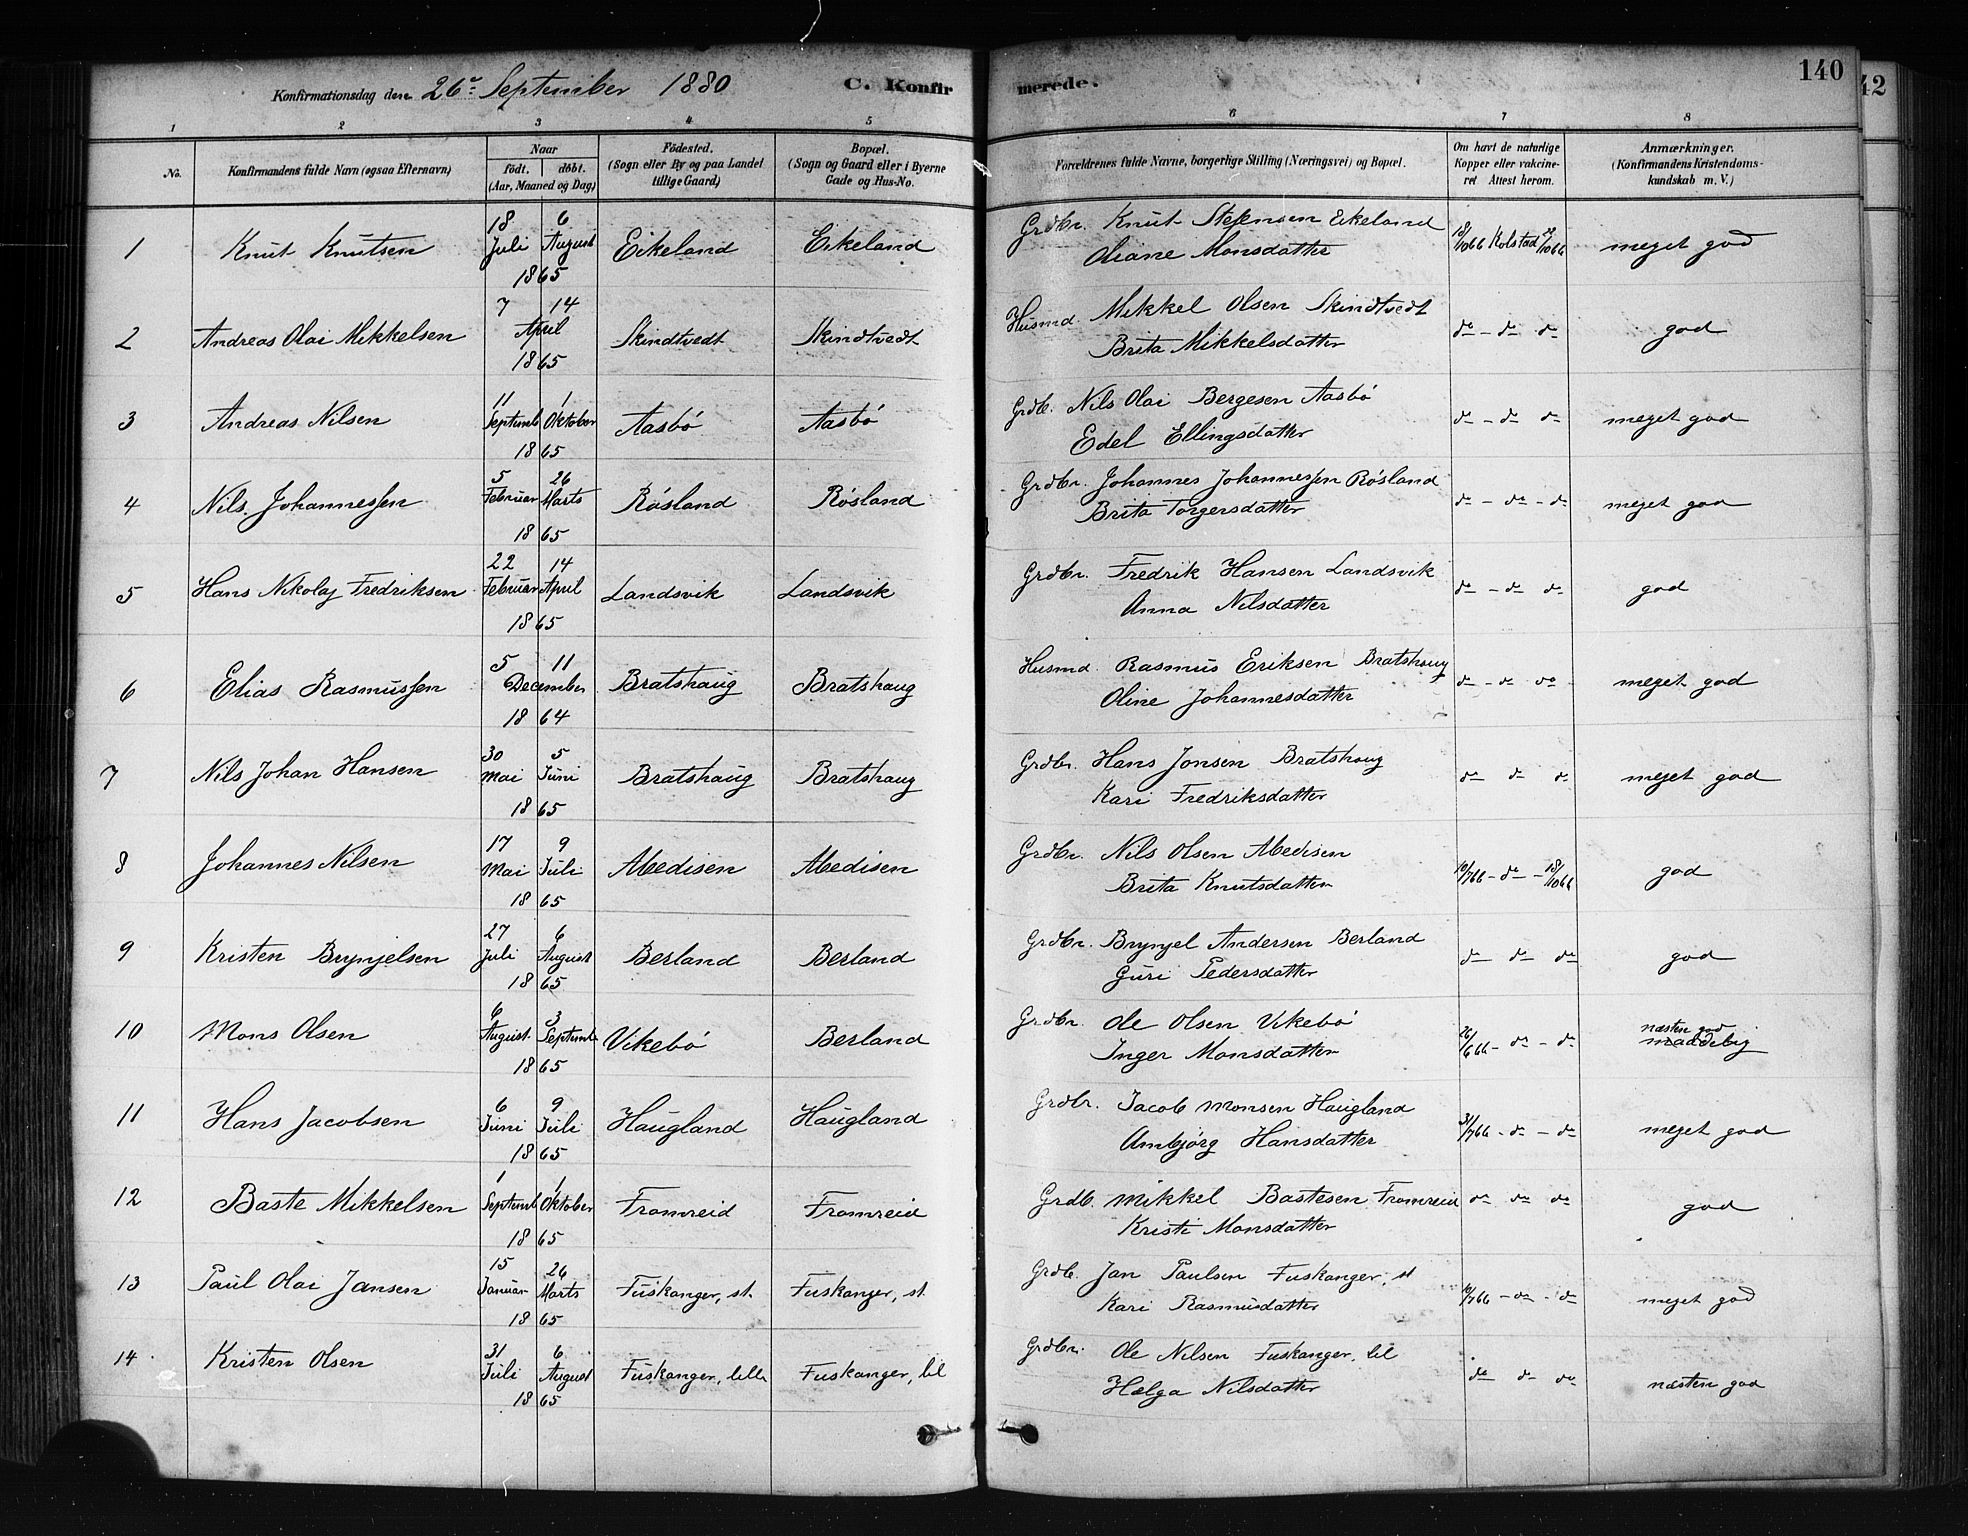 140
42
Konfirmationsdag den 26de September 1880 C. Konfirmerede.
1 2 3 4 5 6 7 8
No. Konfirmandens fulde Navn (ogsaa Efternavn) Naar født. døbt. (Aar, Maaned og Dag) Fødested. (Sogn eller By og paa Landet tillige Gaard.) Bopæl. (Sogn og Gaard eller i Byerne Gade og Hus-No. Forældrenes fulde Navne, borgerlige Stilling (Næringsvei) og Bopæl. Om havt de naturlige Kopper eller vakcineret Attest herom. Anmærkninger. (Konfirmandens Kristendomskundskab m. V.)
1 Knut Knutsen 18 Juli 6 August 1865 Eikeland Eikeland Grdbr. Knut Stefensen Eikeland Oliane Monsdatter 18/1066 Kolstad 29/1066 meget god
2 Andreas Olai Mikkelsen 7 14 April 1865 Skindtvedt Skindtvedt Husmd. Mikkel Olsen Skindtvedt Brita Mikkelsdatter do - do do god
3 Andreas Nilsen 11 Septemb 1 Oktober 1865 Aasbø Aasbø Grdb. Nils Olai Bergesen Aasbø Edel Ellingsdatter do - do do meget god
4 Nils Johannessen 5 Februar 26 Marts 1865 Røsland Røsland Grdbr. Johannes Johannessen Røsland Brita Torgersdatter do - do - do meget god
5 Hans Nikolaj Fredriksen 22 Februar 14 April 1865 Landsvik Landsvik Grdbr. Fredrik Hansen Landsvik Anna Nilsdatter do - do do god
6 Elias Rasmussen 5 11 December 1864 Bratshaug Bratshaug Husmd. Rasmus Eriksen Bratshaug Oline Johannesdatter do - do do meget god
7 Nils Johan Hansen 30 Mai 5 Juni 1865 Bratshaug Bratshaug Grdbr. Hans Jonsen Bratshaug Kari Fredriksdatter do do do meget god
8 Johannes Nilsen 17 Mai 9 Juli 1865 Abedisen Abedisen Grdbr. Nils Olsen Abedisen Brita Knutsdatter 10/766 - do - 18/1066 god
9 Kristen Brynjelsen 27 Juli 6 August 1865 Berland Berland Grdbr. Brynjel Andersen Berland Guri Pedersdatter do do do god
10 Mons Olsen 6 August 3 Septemb 1865 Vikebø Berland Grdbr. Ole Olsen Vikebø Inger Monsdatter 26/666 - do - do næsten god
11 Hans Jacobsen 6 Juni 9 Juli 1865 Haugland Haugland Grdbr. Jacob Monsen Haugland Ambjørg Hansdatter 31/766 - do - do meget god
12 Baste Mikkelsen 1 Septemb 1 Oktober 1865 Fromreid Fromreid Grdb. Mikkel Bastesen Fromreid Kristi Monsdatter do do do god
13 Paul Olai Jansen 15 Januar 26 Marts 1865 Fuskanger, st. Fuskanger, st Grdb. Jan Paulsen Fuskanger, st Kari Rasmusdatter 10/766 - do - do meget god
14 Kristen Olsen 31 Juli 6 August 1865 Fuskanger, lille Fuskanger, lil Grdbr. Ole Nilsen Fuskanger, lil Hælga Nilsdatter do do do næsten god